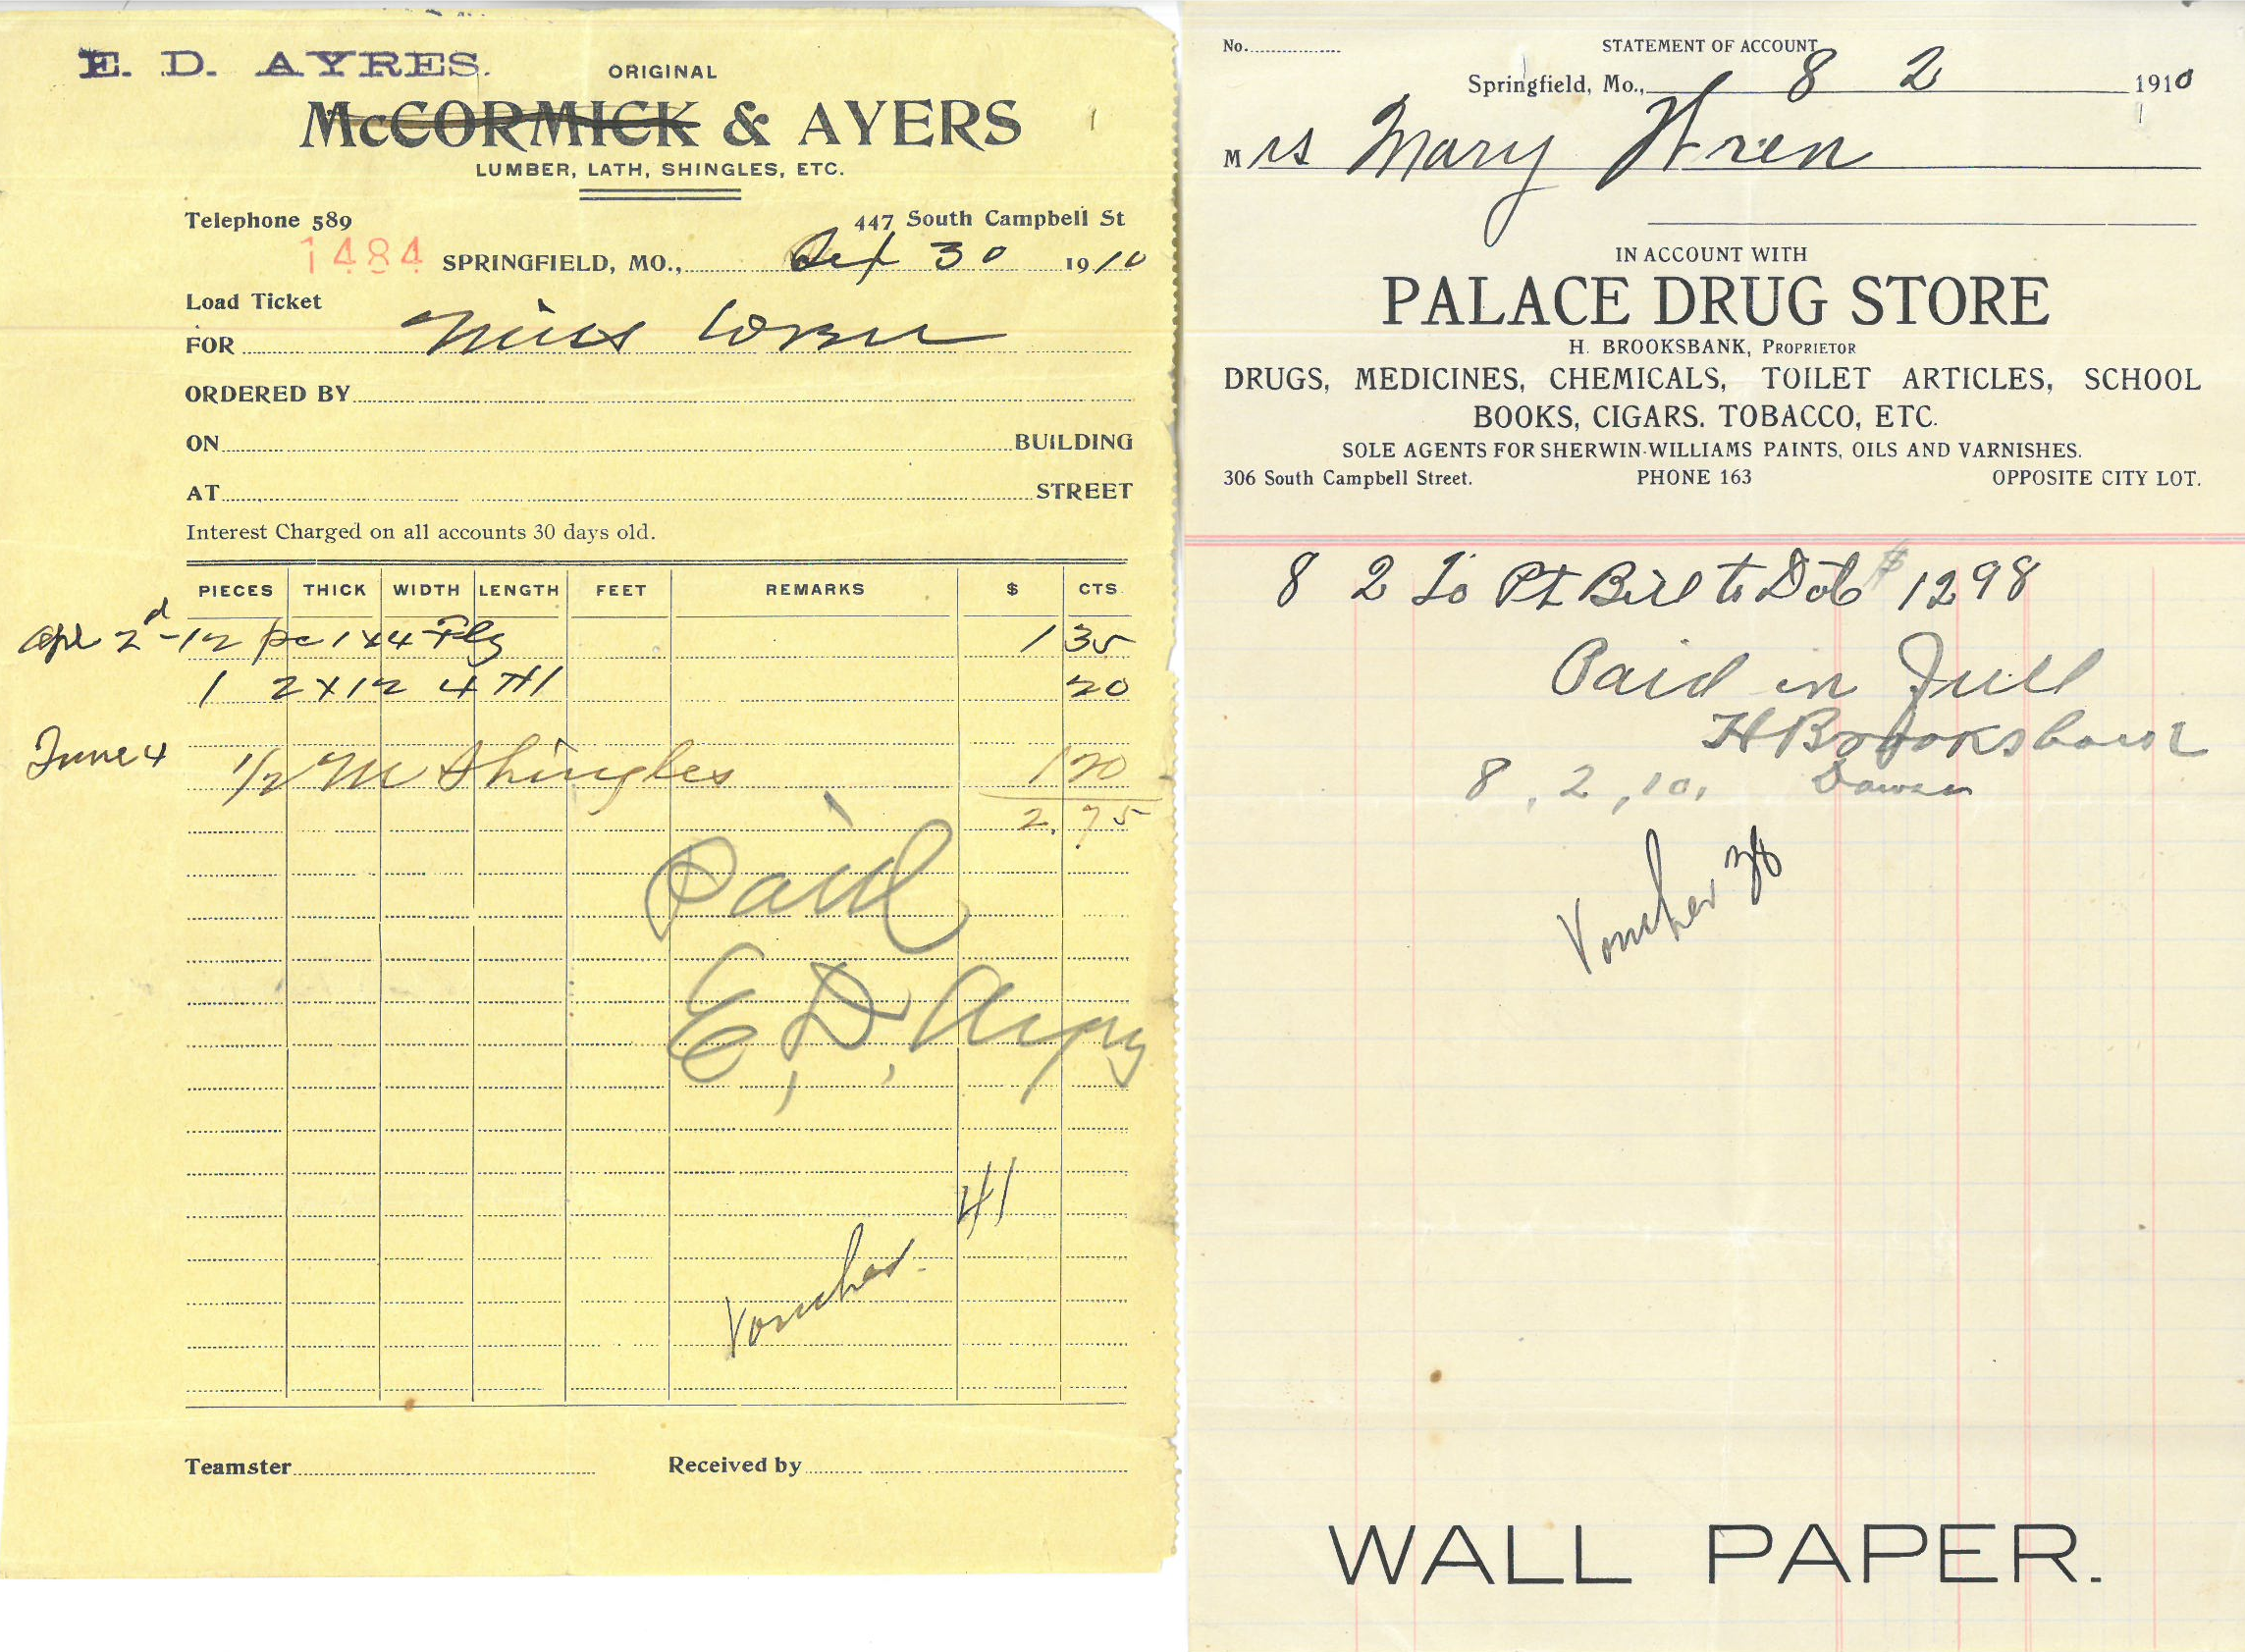 E. D. AYRES.
ORIGINAL
McCORMICK & AYERS
LUMBER, LATH, SHINGLES, ETC.
Telephone 589 447 South Campbell St
1484 SPRINGFIELD, MO., 30 1910
Load Ticket
FOR Miss
ORDERED BY
ON BUILDING
AT STREET
Interest Charged on all accounts 30 days old.
PIECES THICK WIDTH LENGTH FEET REMARKS $ CTS.
Apl 2d - 12 pc 1x4 Flg 1 35
1 2x12 4 20
June 4 1/2 M Shingles 1 20
2.75
Paid
E. D. Ayers
41
Voucher
Teamster Received by
No. STATEMENT OF ACCOUNT
Springfield, Mo., 8 2 1910
Mrs Mary Wren
IN ACCOUNT WITH
PALACE DRUG STORE
H. BROOKSBANK, PROPRIETOR
DRUGS, MEDICINES, CHEMICALS, TOILET ARTICLES, SCHOOL
BOOKS, CIGARS. TOBACCO, ETC.
SOLE AGENTS FOR SHERWIN-WILLIAMS PAINTS, OILS AND VARNISHES.
306 South Campbell Street. PHONE 163 OPPOSITE CITY LOT.
8 2 To Pt Bill to Date $ 12 98
Paid in Full
H Brooksbank
8, 2, 10,
Voucher 38
WALL PAPER.